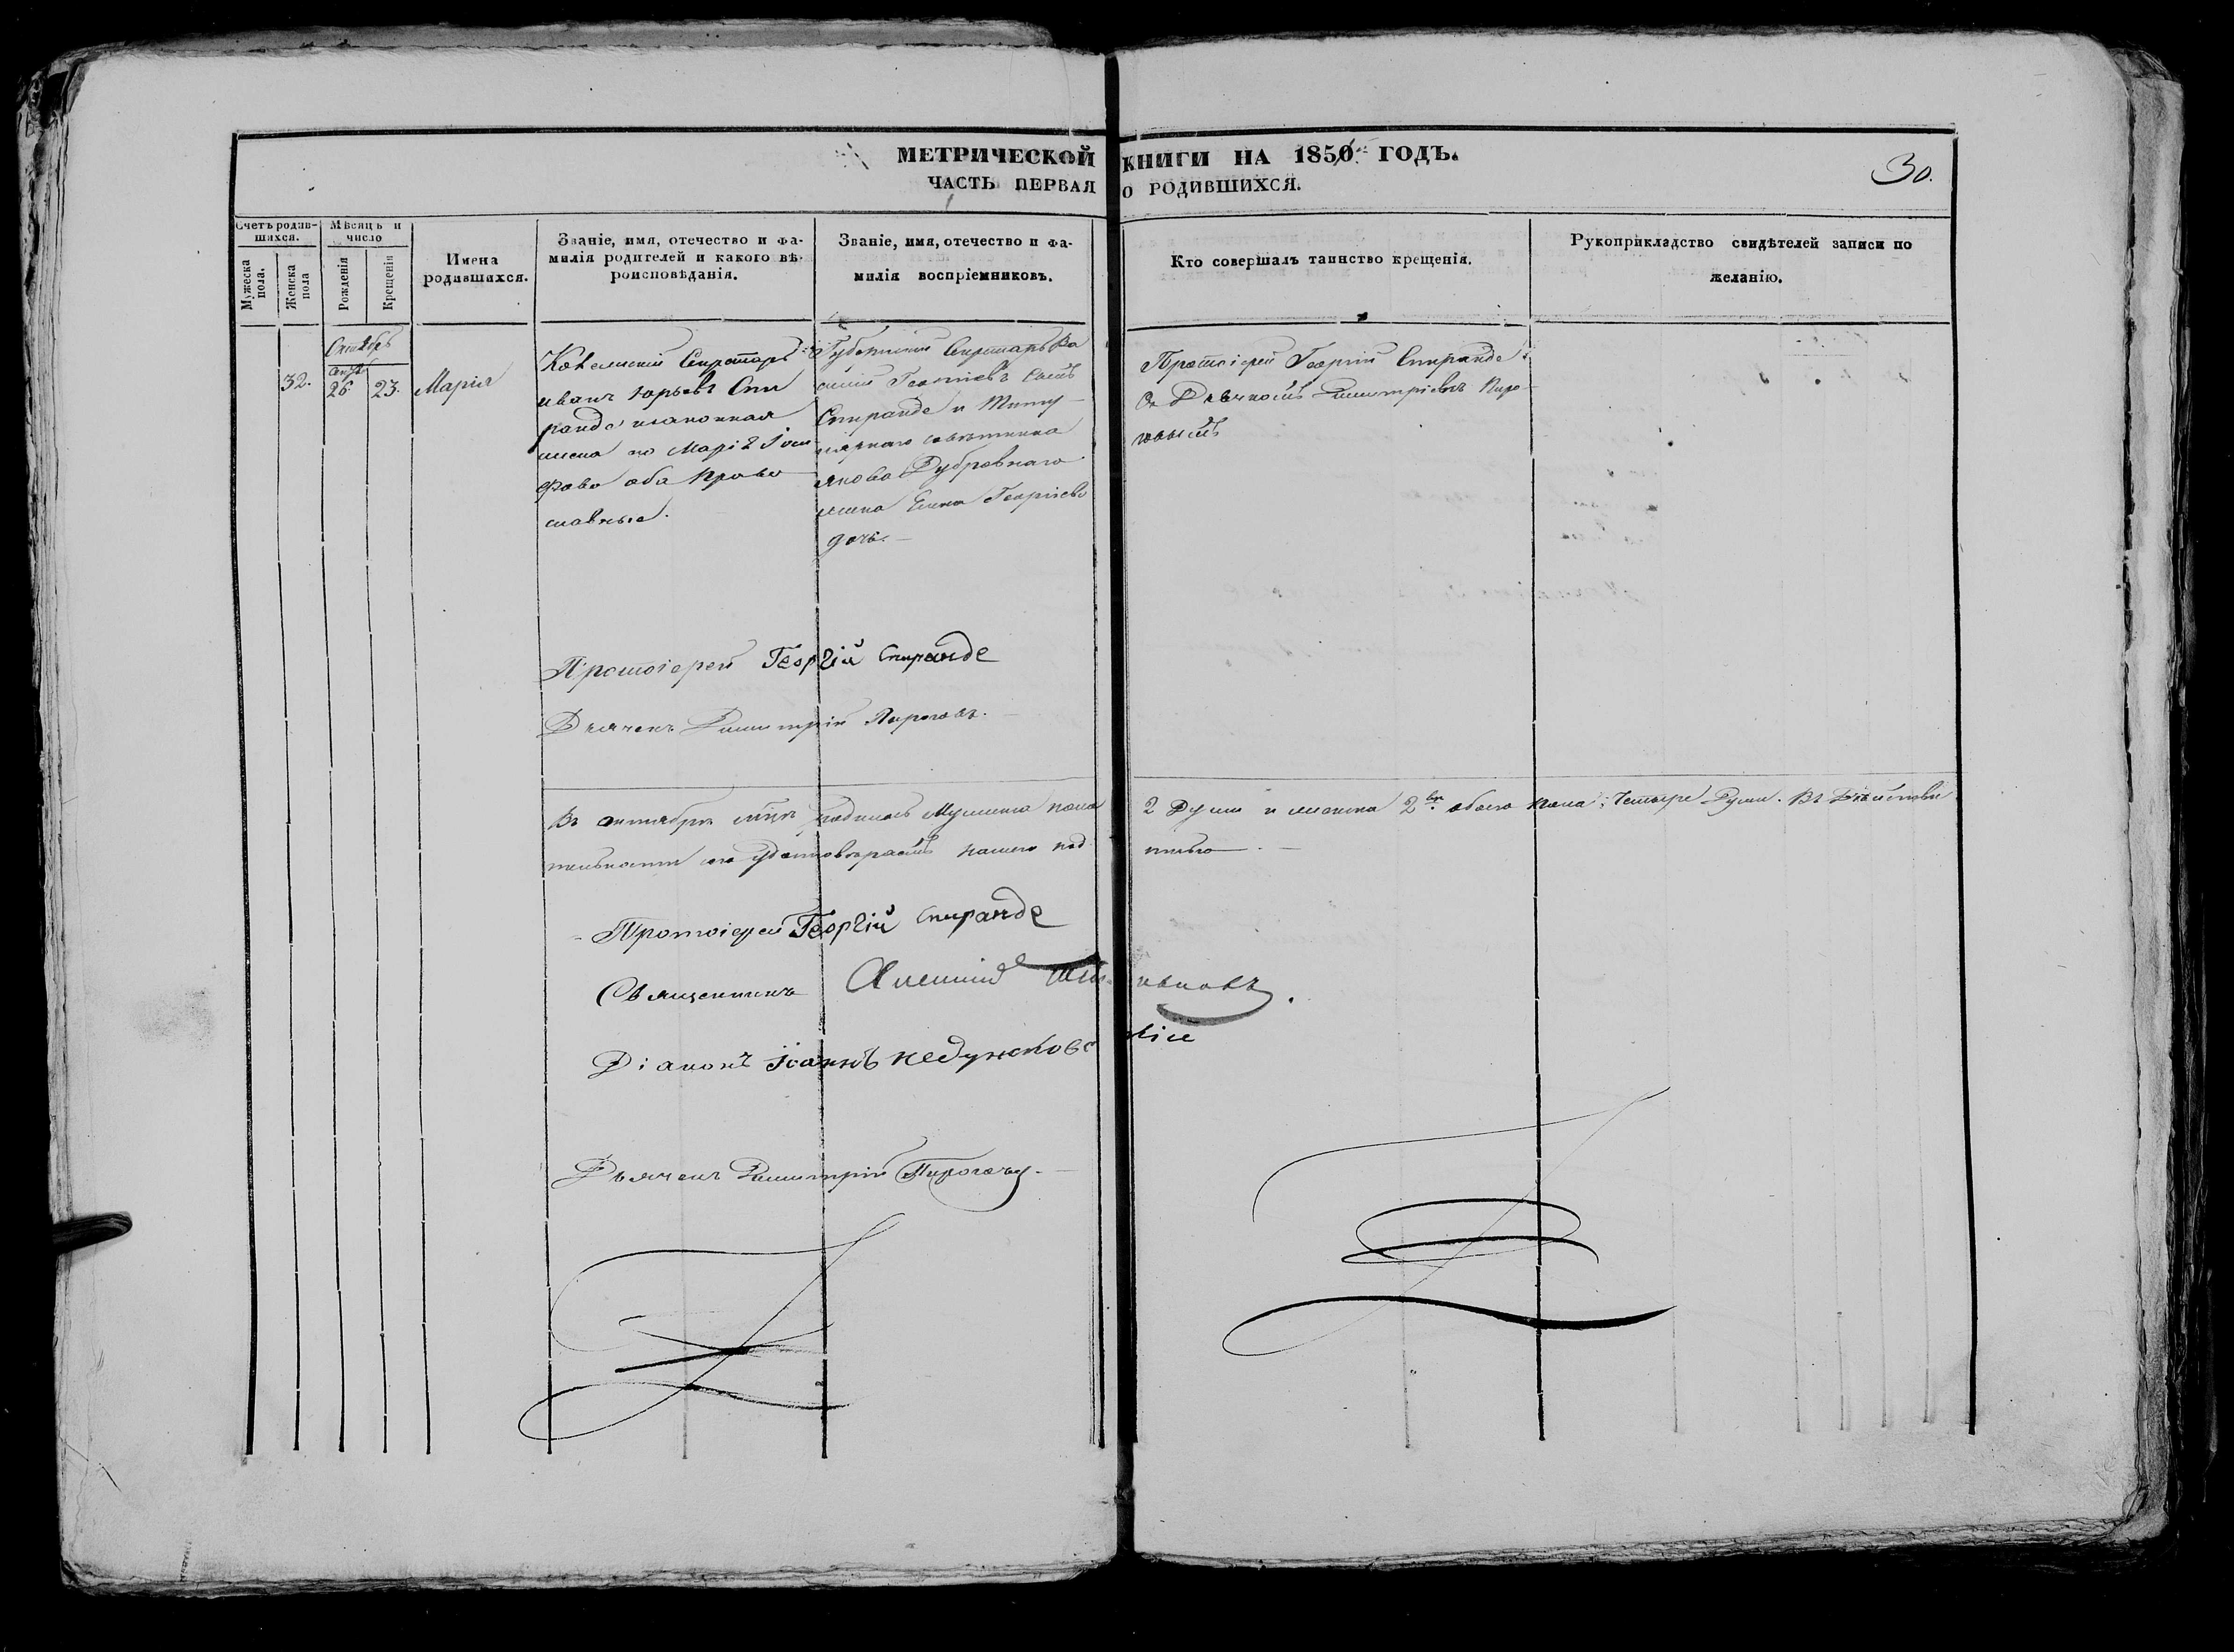 МЕТРИЧЕСКОЙ КНИГИ НА 1850 ГОДЪ.
30.
ЧАСТЬ ПЕРВАЯ О РОДИВШИХСЯ.
Счетъ родив-
шихся.
Мѣсяцъ и
число
Мужеска
пола.
Женска
пола
Рожденія
Крещенія
Имена
родившихся.
Званіе, имя, отечество и фа-
милія родителей и какого вѣ-
роисповѣданія.
Званіе, имя, отечество и фа-
милія воспріемниковъ.
Кто совершалъ таинство крещенія.
Рукоприкладство свидѣтелей записи по
желанію.
Октябрь
32.
26
23.
Марія
Секретарь
иванъ Юрьевъ Спи
ранде изаконная
жена его Марія Іоси
фова оба право
славные.
Губернскій Секретарь Ва
силій Георгіевъ сынъ
Спиранде и Титу
лярнаго совѣтника
якова Дубровнаго
жена Елена Георгіева
дочь.
Протоіерей Георгій Спиранде
Съ Дьячкомъ Димитріевъ Пиро
говымъ
Протоіерей Георгій Спиранде
Дьячекъ Димитрій Пироговъ.
Въ октябрѣ мѣцѣ родилось Мужеска пола 2 Души и женска 2 обоего пола: Четыре Души. Въ Дѣйстви
тельности сего удостовѣряемъ нашею под писью
Протоіерей Георгій Спиранде
Священникъ Алексій
Діаконъ Іоаннъ
Дьячекъ Димитрій